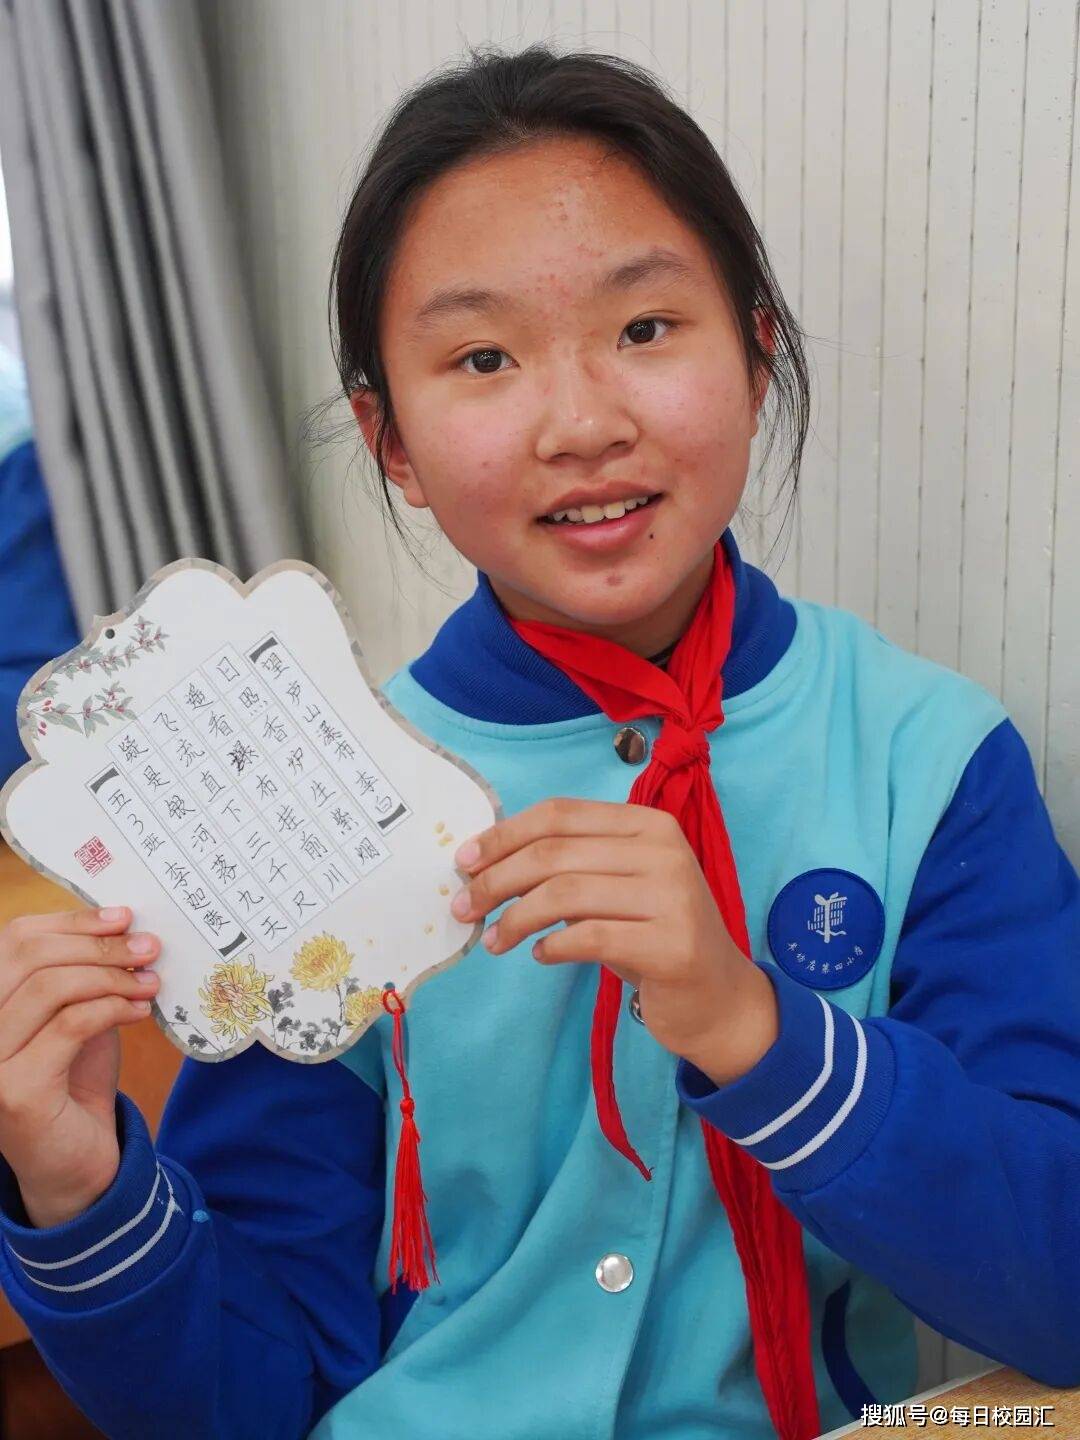 【望庐山瀑布 李白】
日照香炉生紫烟
遥看瀑布挂前川
飞流直下三千尺
疑是银河落九天
【五3班 李】
羊坊店第四小学
搜狐号@每日校园汇